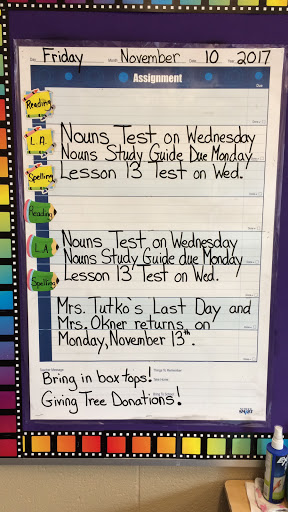 Day Friday Month November Date 10 Year 2017
Assignment
Due
Reading
L.A. Nouns Test on Wednesday
Nouns Study Guide Due Monday
Spelling Lesson 13 Test on Wed.
Reading
L.A. Nouns Test on Wednesday
Nouns Study Guide due Monday
Spelling Lesson 13 Test on Wed.
Mrs. Tutko's Last Day and
Mrs. Okner returns on
Monday, November 13th.
Things To Remember
Bring in box tops!
Giving Tree Donations!